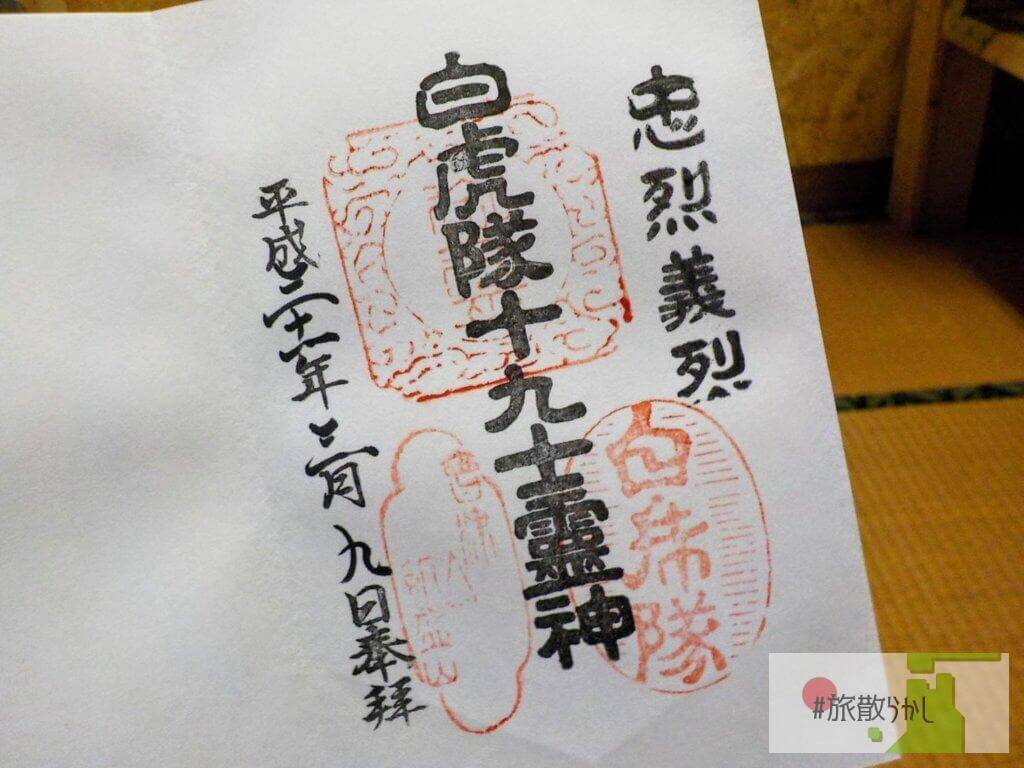 忠烈義烈
白虎隊十九士靈神
平成二十六年三月九日奉拜
白虎隊
飯盛山
#旅散らかし